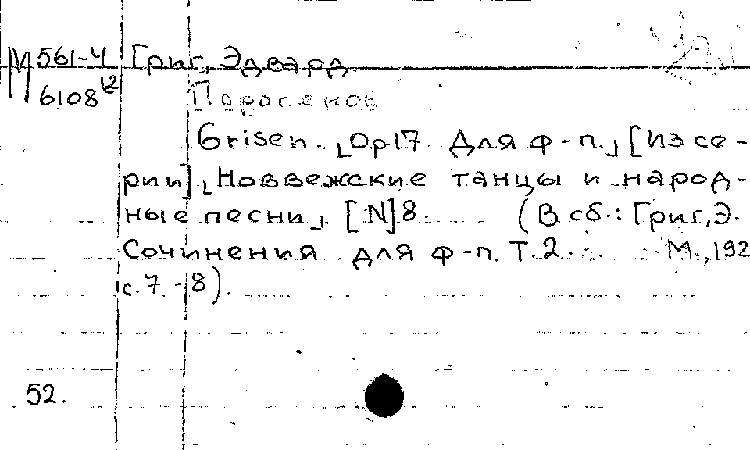 М 561-4 Григ, Эдвард
6108 Поросенок
Grisen. Op17. Для ф-п. [Из се-
рии] Новвежские танцы и народ-
ные песни [N]8 (В сб.: Григ, Э.
Сочинения для ф-п. Т.2. М., 192
с.7-8).
52.